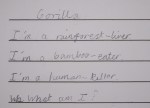 Gorilla
I'm a rainforest-liver
I'm a bamboo-eater
I'm a human-
What am I?